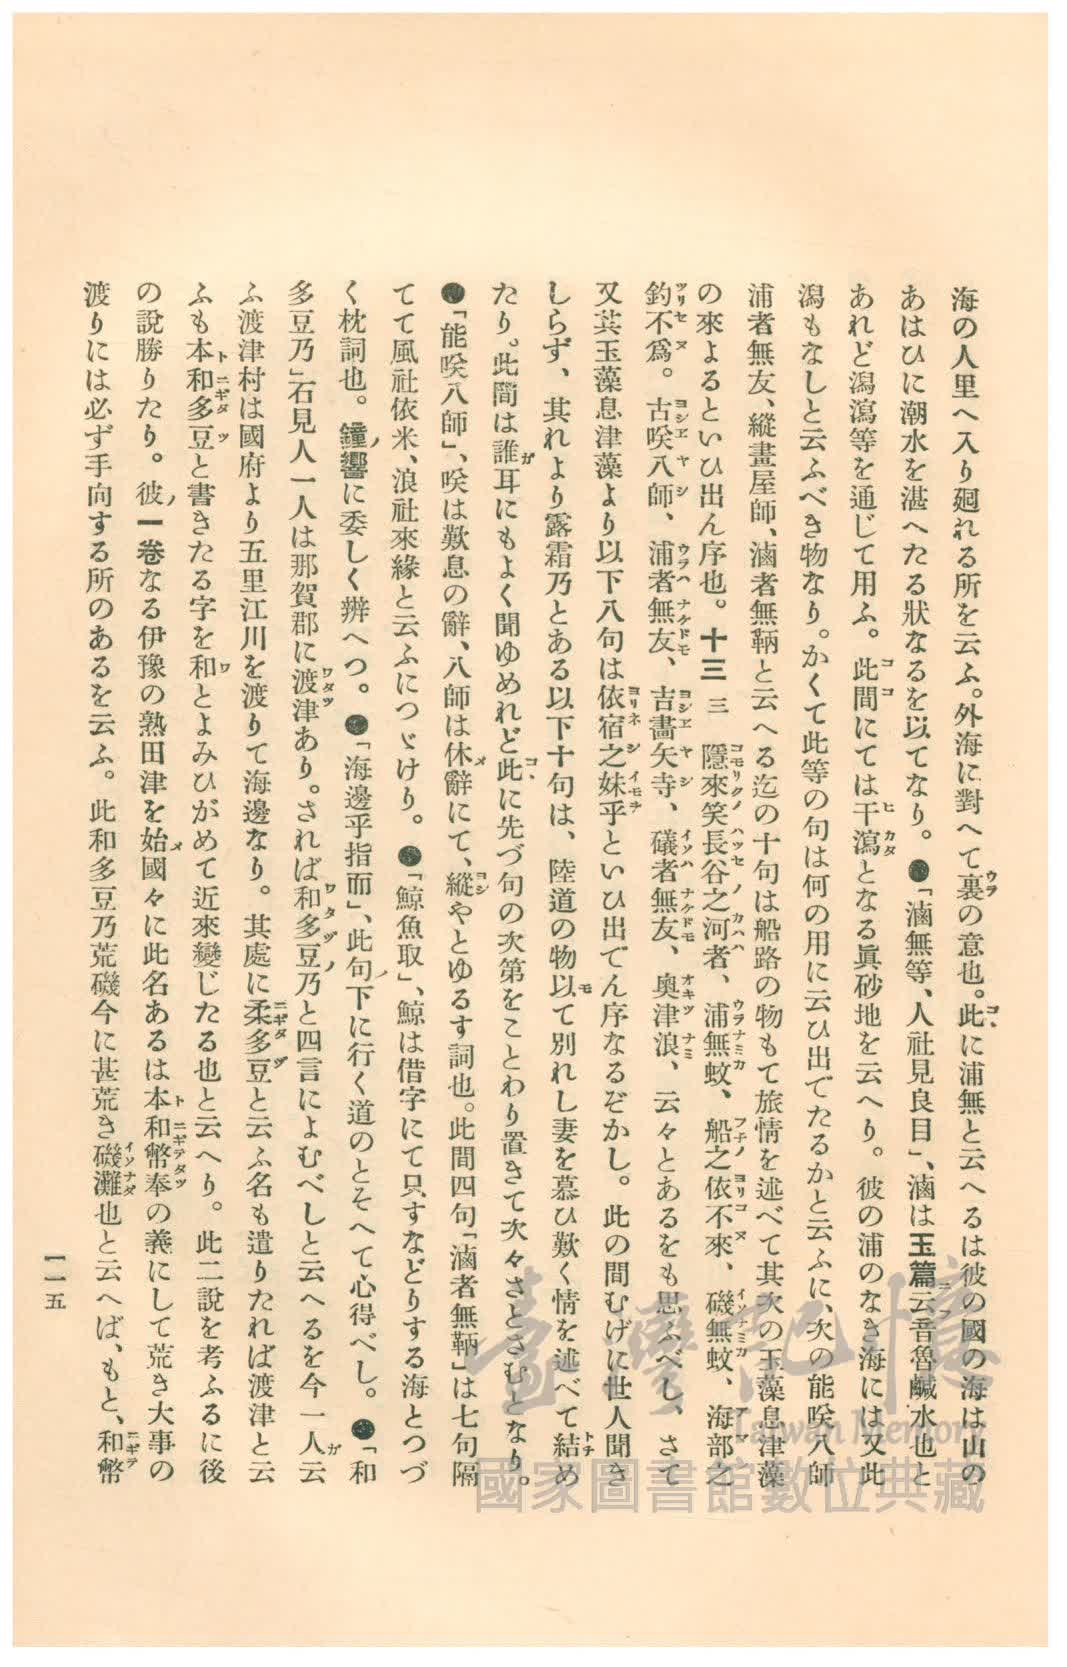 海の人里へ入り廻れる所を云ふ。外海に對へて裏の意也。此に浦無と云へるは彼の國の海は山の
あはひに潮水を湛へたる狀なるを以てなり。●「滷無等、人社見良目」、滷は玉篇云音魯鹹水也と
あれど潟瀉等を通じて用ふ。此間にては干瀉となる眞砂地を云へり。彼の浦のなき海には又此
潟もなしと云ふべき物なり。かくて此等の句は何の用に云ひ出でたるかと云ふに、次の能咲八師
浦者無友、縱畫屋師、滷者無鞆と云へる迄の十句は船路の物もて旅情を述べて其次の玉藻息津藻
の來よるといひ出ん序也。十三 三 隱來笑長谷之河者、浦無蚊、船之依不來、磯無蚊、海部之
釣不爲。古咲八師、浦者無友、吉畵矢寺、礒者無友、奥津浪、云々とあるをも思ふべし、さて
又其玉藻息津藻より以下八句は依宿之妹乎といひ出でん序なるぞかし。此の間むげに世人聞き
しらず、其れより露霜乃とある以下十句は、陸道の物以て別れし妻を慕ひ歎く情を述べて結め
たり。此間は誰耳にもよく聞ゆめれど此に先づ句の次第をことわり置きて次々さとさむとなり。
●「能咲八師」、咲は歎息の辭、八師は休辭にて、縱やとゆるす詞也。此間四句「滷者無鞆」は七句隔
てて風社依米、浪社來緣と云ふにつゞけり。●「鯨魚取」、鯨は借字にて只すなどりする海とつづ
く枕詞也。鐘響に委しく辨へつ。●「海邊乎指而」、此句下に行く道のとそへて心得べし。●「和
多豆乃」石見人一人は那賀郡に渡津あり。されば和多豆乃と四言によむべしと云へるを今一人云
ふ渡津村は國府より五里江川を渡りて海邊なり。其處に柔多豆と云ふ名も遣りたれば渡津と云
ふも本和多豆と書きたる字を和とよみひがめて近來變じたる也と云へり。此二說を考ふるに後
の說勝りたり。彼一卷なる伊豫の熟田津を始國々に此名あるは本和幣奉の義にして荒き大事の
渡りには必ず手向する所のあるを云ふ。此和多豆乃荒磯今に甚荒き磯灘也と云へば、もと、和幣
一一五
臺灣記憶
Taiwan Memory
國家圖書館數位典藏